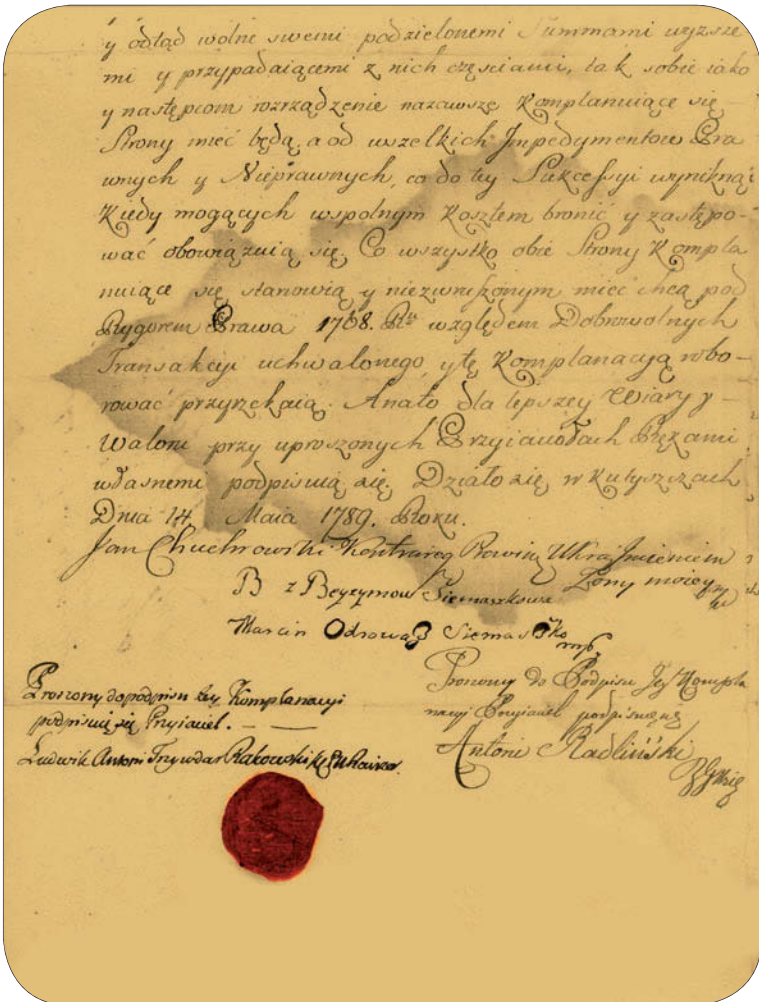 y odtąd wolne swemi podzielonemi Summami wyższe
mi y przypadaiącemi z nich częściami, tak sobie iako
y następcom rozrządzenie nazawsze Komplanuiące się
Strony mieć będą, a od wszelkich Impedymentow Pra
wnych y Nieprawnych, co do tey Sukcessyi wyniknąć
Kiedy mogących wspolnym Kosztem bronić y zastępo-
wać obowiązuią się. Co wszystko obie Strony Kompla
nuiące się stanowią y niezwruszonym mieć chcą pod
Rygorem Prawa 1768. Ru względem Dobrowolnych
Transakcyi uchwalonego, y tę Komplanacyą robo-
rować przyrzekaią. Anato dla lepszey Wiary y
Waloru przy uproszonych Przyiaciołach Rękami
własnemi podpisuią się. Działo się w Kutyszczach
Dnia 14 Maia 1789. Roku.
Jan Chuchrowski Imieniem
Żony moiey
B z Beyzymow Siemaszkowa
Marcin Odrowąż Siemaszko mp
Proszony do podpisu tey Komplanacyi
podpisuię się Przyiaciel.
Ludwik Antoni Trzywdar Rakowski
Proszony do Podpisu Tey Kompla
nacyi Przyiaciel podpisuię się
Antoni Radliński